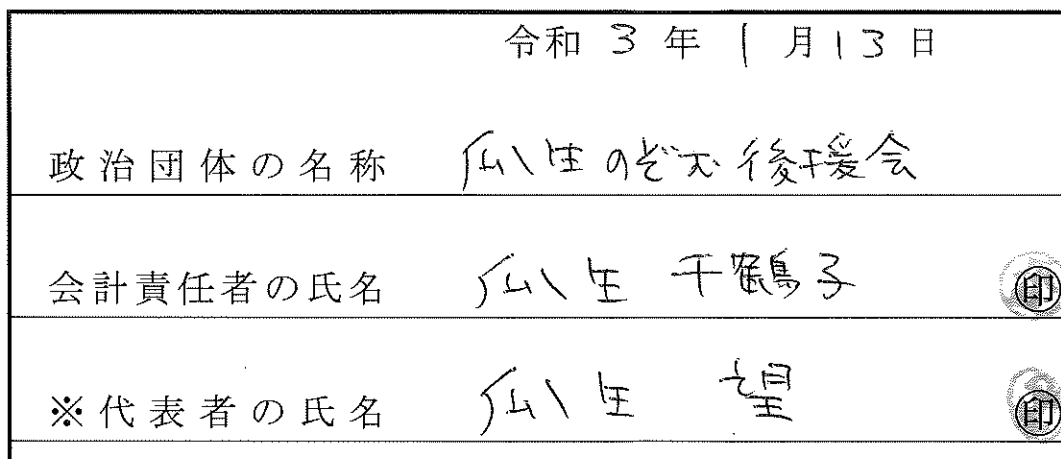 令和 3 年 1 月 13 日
政治団体の名称 瓜生のぞむ後援会
会計責任者の氏名 瓜生 千鶴子 印
※代表者の氏名 瓜生 望 印